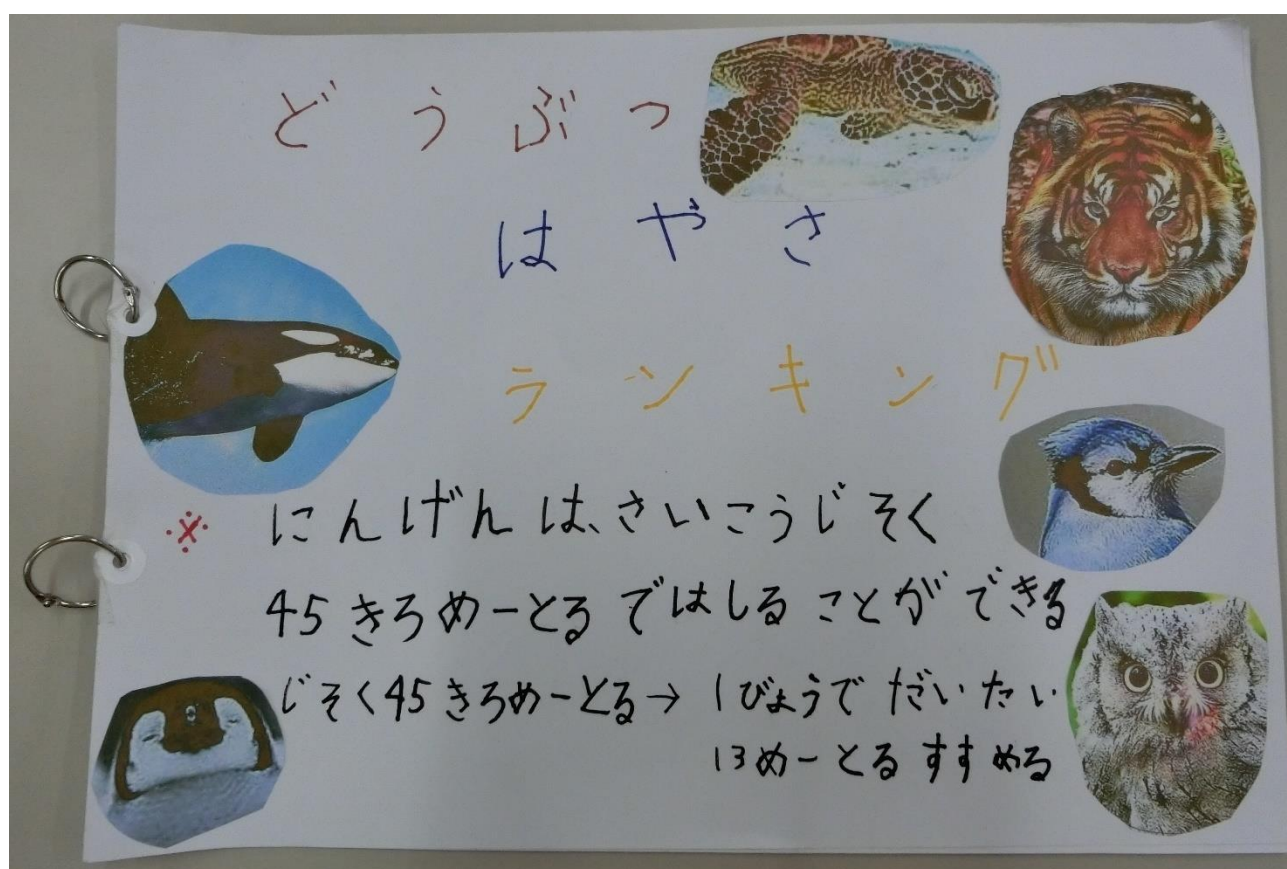 どうぶつ
はやさ
ランキング
※ にんげんは、さいこうじそく
45きろめーとるではしることができる
じそく45きろめーとる→1びょうでだいたい
13めーとるすすめる